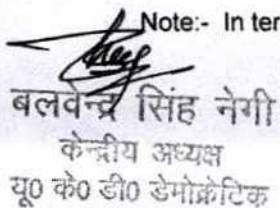 Note:- In ter
बलवेन्द्र सिंह नेगी
केन्द्रीय अध्यक्ष
यू0 के0 डी0 डेमोक्रेटिक